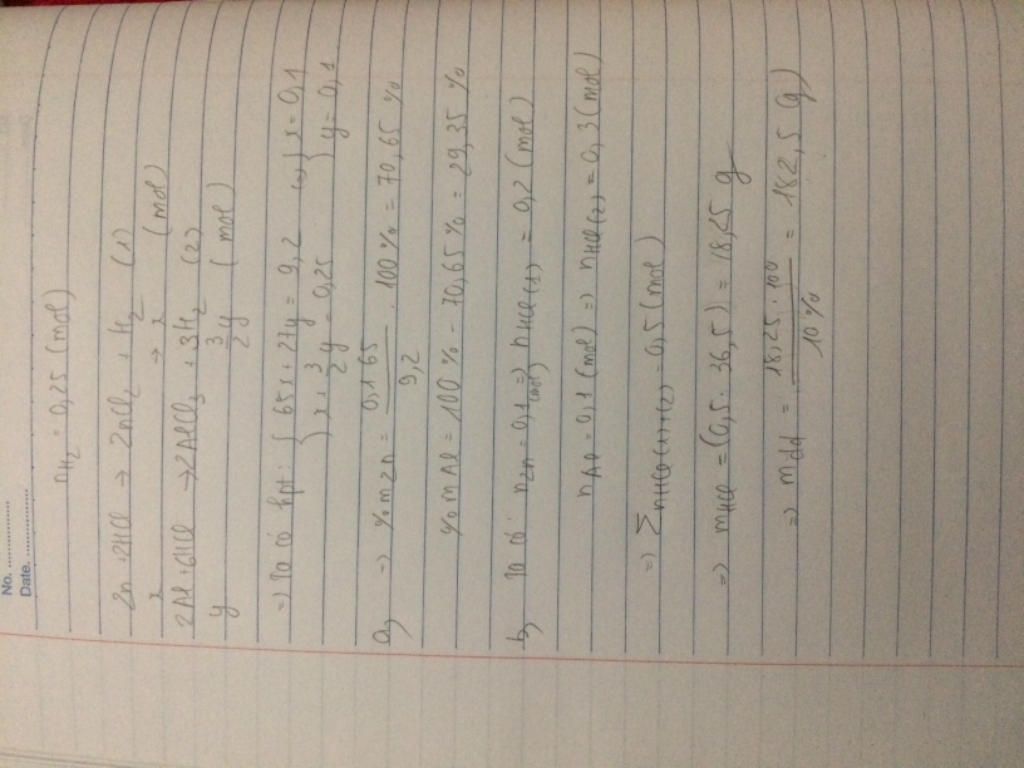 No. ....................
Date. ....................
nH₂ = 0,25 (mol)
Zn + 2HCl → ZnCl₂ + H₂ (1)
x → x (mol)
2Al + 6HCl → 2AlCl₃ + 3H₂ (2)
y 3/2y (mol)
=> Ta có hpt: { 65x + 27y = 9,2 (=) { x = 0,1
{ x + 3/2y = 0,25 { y = 0,1
a, => %mZn = 0,1.65/9,2 . 100% = 70,65%
%mAl = 100% - 70,65% = 29,35%
b, Ta có: nZn = 0,1 (mol) => nHCl(1) = 0,2 (mol)
nAl = 0,1 (mol) => nHCl(2) = 0,3 (mol)
=> ∑nHCl(1)+(2) = 0,5 (mol)
=> mHCl = (0,5 . 36,5) = 18,25 g
=> mdd = 18,25.100/10% = 182,5 (g)